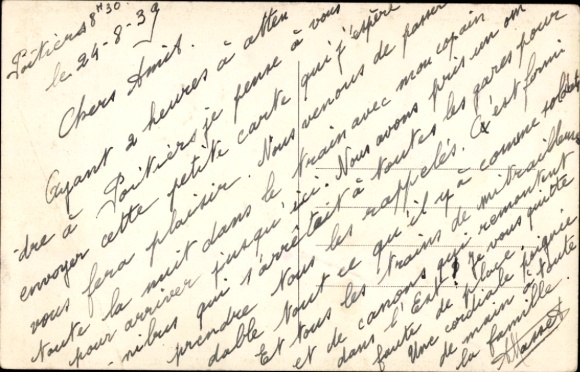 Poitiers 8H30.
le 24-8-39
Chers Amis.
Ayant 2 heures à atten
-dre à Poitiers je pense à vous
envoyer cette petite carte qui j'espère
vous fera plaisir. Nous venons de passer
toute la nuit dans le train avec mon copain
pour arriver jusqu'ici. Nous avons pris un om
-nibus qui s'arrêtait à toutes les gares pour
prendre tous les rappelés. C'est formi
dable tout ce qu'il y à comme soldats
Et tous les trains de mitrailleuses
et de canons qui remontent
dans l'Est. Je vous quitte
faute de place.
Une cordiale poignée
de main à toute
la famille.